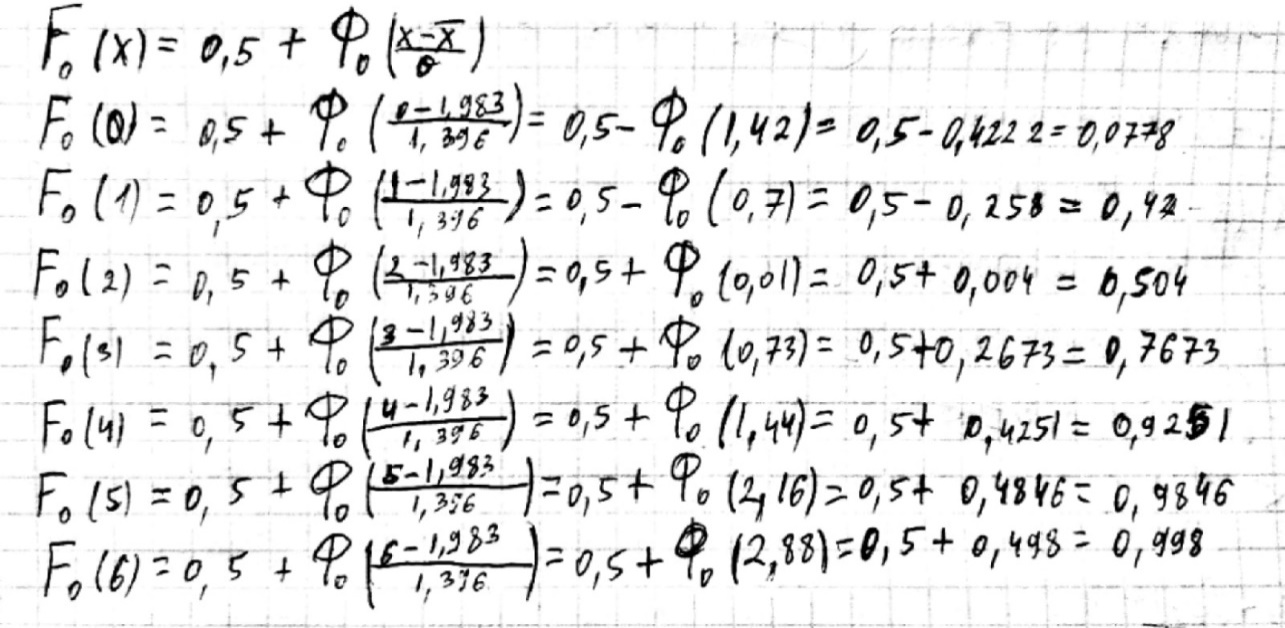 F₀(x) = 0,5 + Φ₀((x-x̅)/σ)
F₀(0) = 0,5 + Φ₀((0-1,983)/1,396) = 0,5 - Φ₀(1,42) = 0,5 - 0,4222 = 0,0778
F₀(1) = 0,5 + Φ₀((1-1,983)/1,396) = 0,5 - Φ₀(0,7) = 0,5 - 0,258 = 0,42
F₀(2) = 0,5 + Φ₀((2-1,983)/1,396) = 0,5 + Φ₀(0,01) = 0,5 + 0,004 = 0,504
F₀(3) = 0,5 + Φ₀((3-1,983)/1,396) = 0,5 + Φ₀(0,73) = 0,5 + 0,2673 = 0,7673
F₀(4) = 0,5 + Φ₀((4-1,983)/1,396) = 0,5 + Φ₀(1,44) = 0,5 + 0,4251 = 0,9251
F₀(5) = 0,5 + Φ₀((5-1,983)/1,396) = 0,5 + Φ₀(2,16) = 0,5 + 0,4846 = 0,9846
F₀(6) = 0,5 + Φ₀((6-1,983)/1,396) = 0,5 + Φ₀(2,88) = 0,5 + 0,498 = 0,998